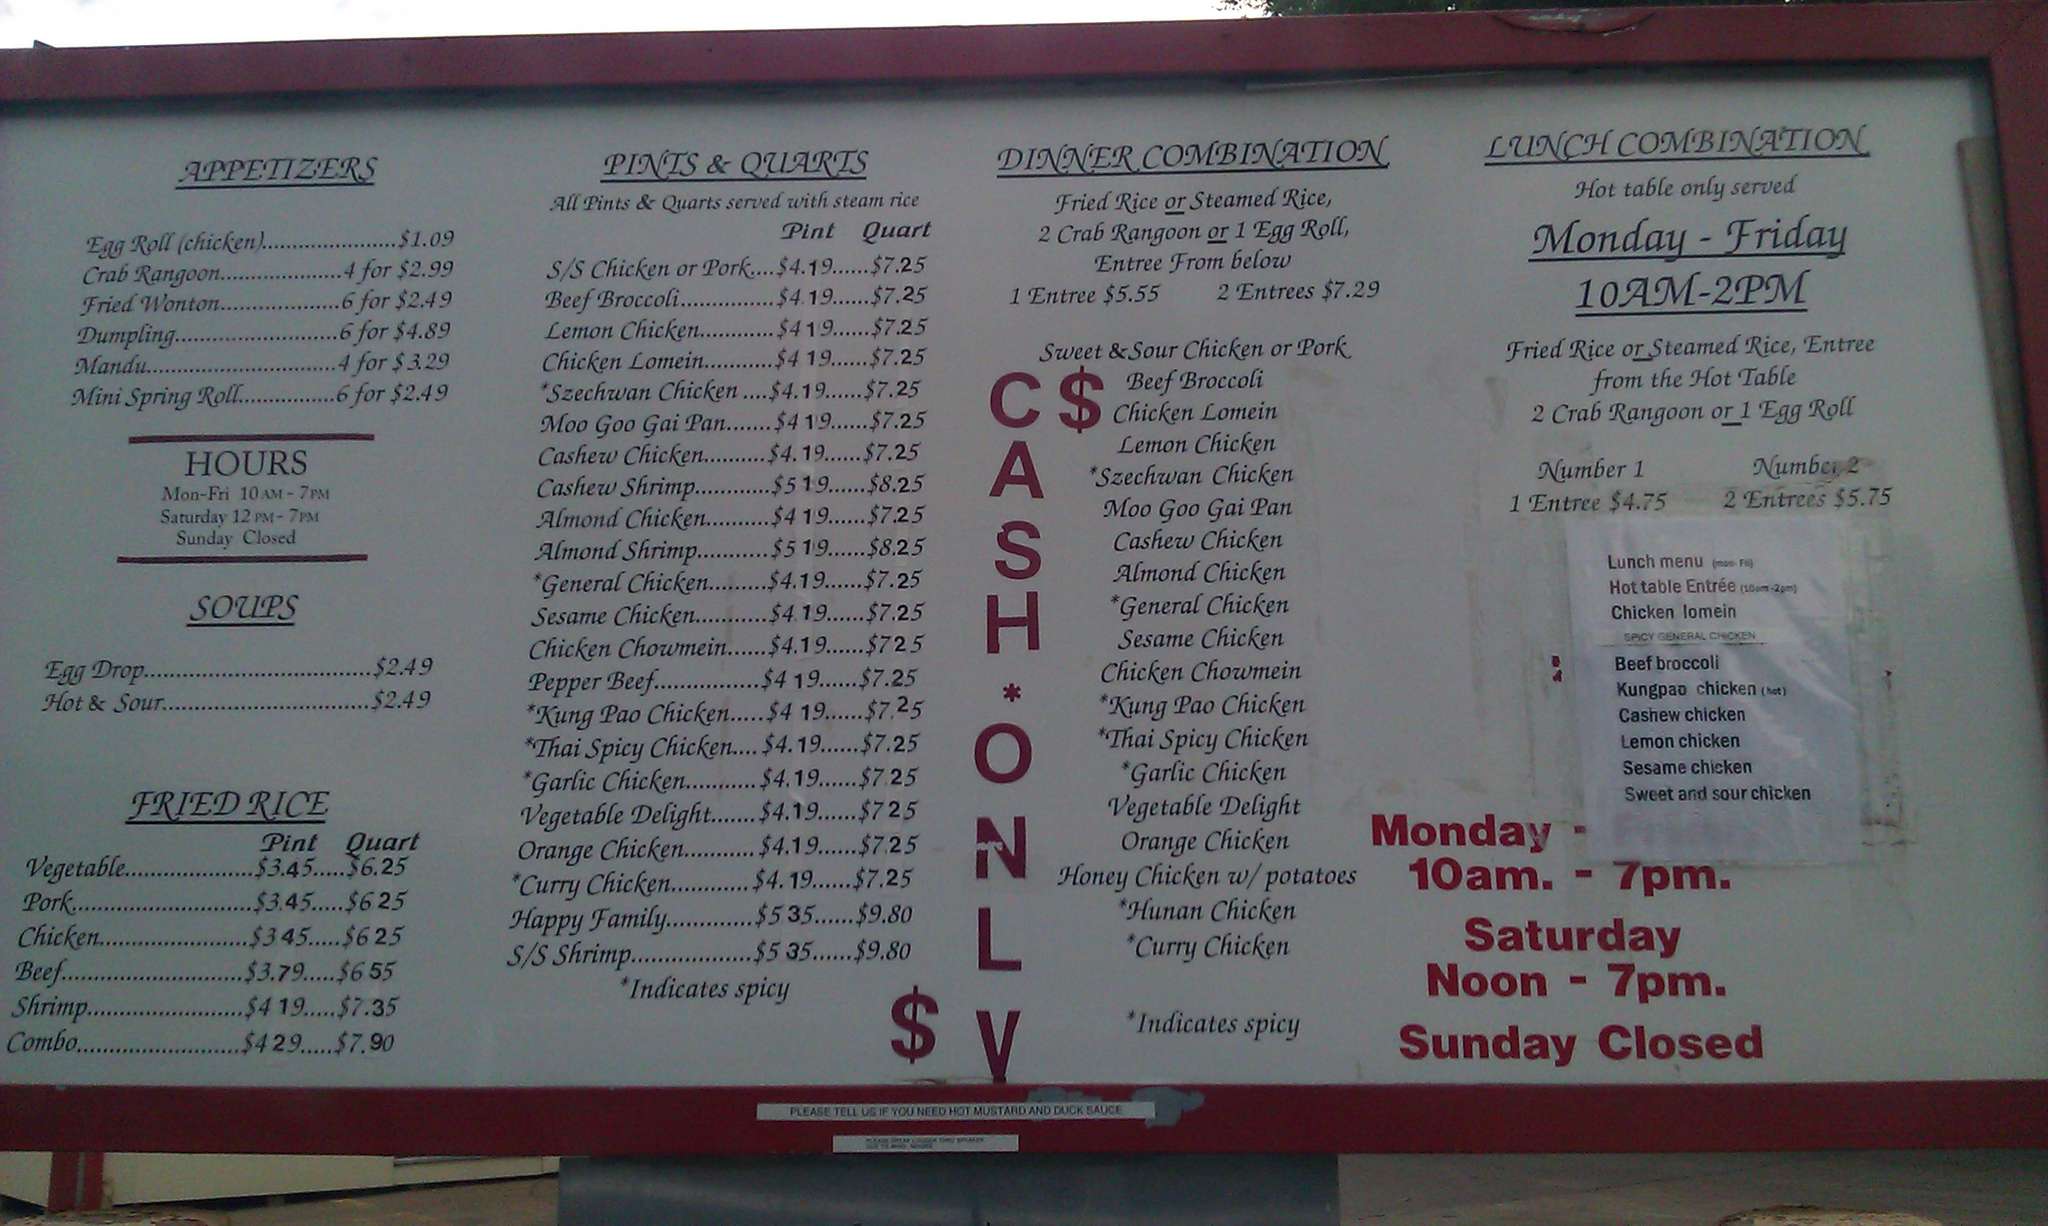 APPETIZERS
Egg Roll (chicken)......................$1.09
Crab Rangoon....................4 for $2.99
Fried Wonton....................6 for $2.49
Dumpling...........................6 for $4.89
Mandu...............................4 for $3.29
Mini Spring Roll................6 for $2.49
HOURS
Mon-Fri 10 AM - 7 PM
Saturday 12 PM - 7 PM
Sunday Closed
SOUPS
Egg Drop......................................$2.49
Hot & Sour..................................$2.49
FRIED RICE
Pint Quart
Vegetable.....................$3.45.....$6.25
Pork.............................$3.45.....$6 25
Chicken........................$3 45.....$6 25
Beef..............................$3.79.....$6 55
Shrimp..........................$4 19.....$7.35
Combo...........................$4 29.....$7.90
PINTS & QUARTS
All Pints & Quarts served with steam rice
Pint Quart
S/S Chicken or Pork....$4.19......$7.25
Beef Broccoli...............$4.19......$7.25
Lemon Chicken............$4 19......$7.25
Chicken Lomein...........$4 19......$7.25
*Szechwan Chicken ....$4.19......$7.25
Moo Goo Gai Pan.......$4 19......$7.25
Cashew Chicken..........$4.19......$7.25
Cashew Shrimp............$5 19......$8.25
Almond Chicken...........$4 19......$7.25
Almond Shrimp............$5 19......$8.25
*General Chicken.........$4.19......$7.25
Sesame Chicken............$4 19......$7.25
Chicken Chowmein......$4.19......$7 25
Pepper Beef.................$4 19......$7.25
*Kung Pao Chicken.....$4 19......$7.25
*Thai Spicy Chicken....$4.19......$7.25
*Garlic Chicken...........$4.19......$7.25
Vegetable Delight.......$4.19......$7 25
Orange Chicken...........$4.19......$7.25
*Curry Chicken............$4.19......$7.25
Happy Family.............$5 35......$9.80
S/S Shrimp..................$5 35......$9.80
*Indicates spicy
$ CASH * ONLY $
DINNER COMBINATION
Fried Rice or Steamed Rice,
2 Crab Rangoon or 1 Egg Roll,
Entree From below
1 Entree $5.55 2 Entrees $7.29
Sweet & Sour Chicken or Pork
Beef Broccoli
Chicken Lomein
Lemon Chicken
*Szechwan Chicken
Moo Goo Gai Pan
Cashew Chicken
Almond Chicken
*General Chicken
Sesame Chicken
Chicken Chowmein
*Kung Pao Chicken
*Thai Spicy Chicken
*Garlic Chicken
Vegetable Delight
Orange Chicken
Honey Chicken w/ potatoes
*Hunan Chicken
*Curry Chicken
*Indicates spicy
LUNCH COMBINATION
Hot table only served
Monday - Friday
10AM-2PM
Fried Rice or Steamed Rice, Entree
from the Hot Table
2 Crab Rangoon or 1 Egg Roll
Number 1 Number 2
1 Entree $4.75 2 Entrees $5.75
Lunch menu (mon- Fri)
Hot table Entrée (10am-2pm)
Chicken lomein
SPICY GENERAL CHICKEN
Beef broccoli
Kungpao chicken (hot)
Cashew chicken
Lemon chicken
Sesame chicken
Sweet and sour chicken
Monday -
10am. - 7pm.
Saturday
Noon - 7pm.
Sunday Closed
PLEASE TELL US IF YOU NEED HOT MUSTARD AND DUCK SAUCE
PLEASE SPEAK LOUDER THRU SPEAKER